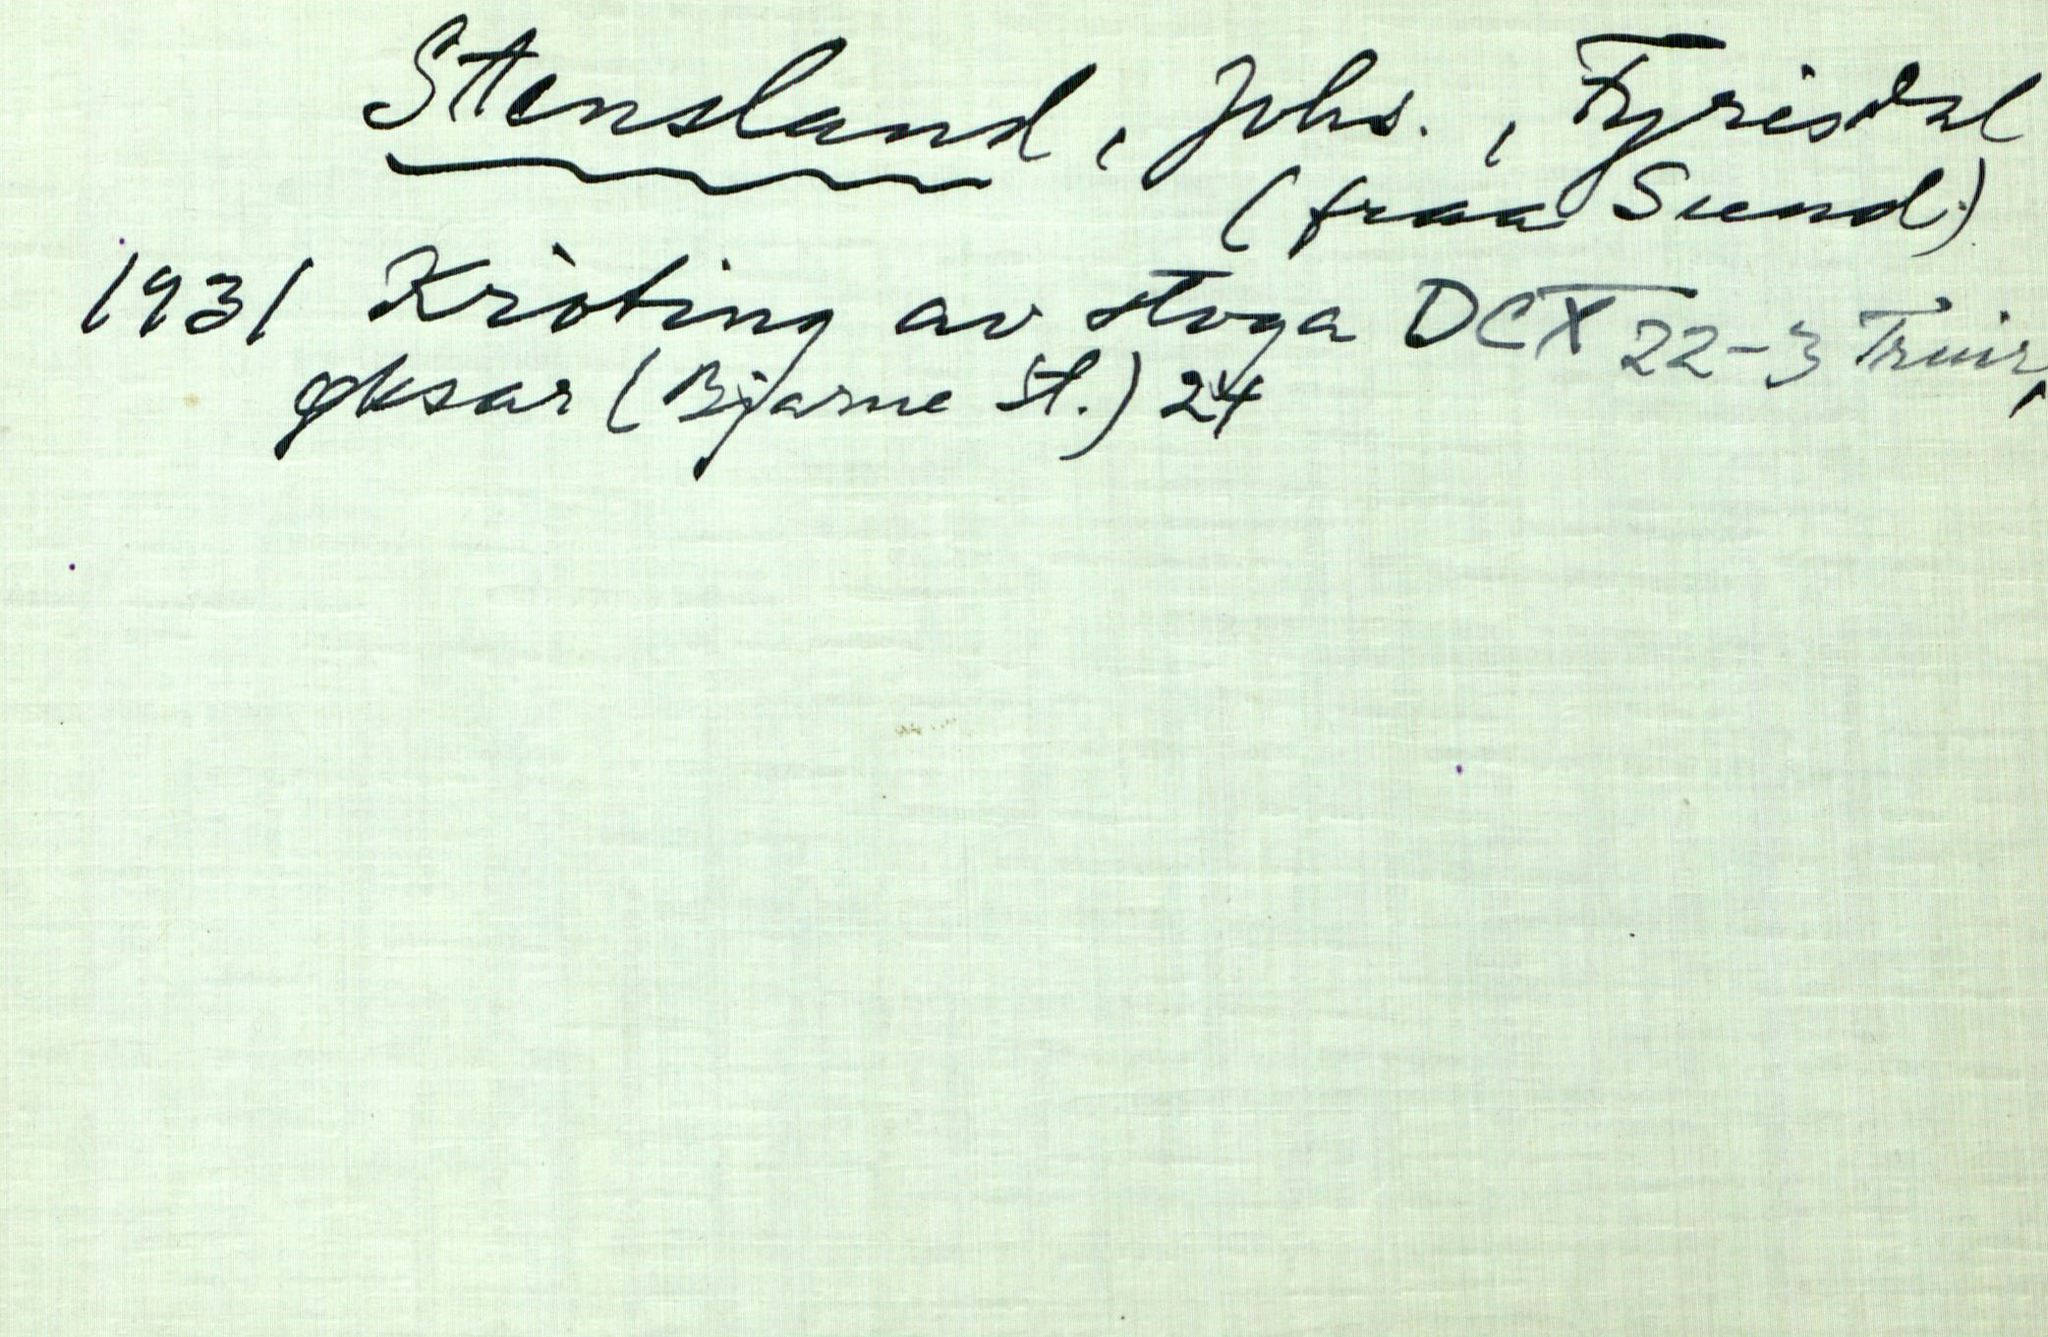 Stensland, Johs., Fyrisdal
(fraa Sund)
1931 Kròting av stoga DCX 22-3 Truir,
øksar (Bjarne St.) 24